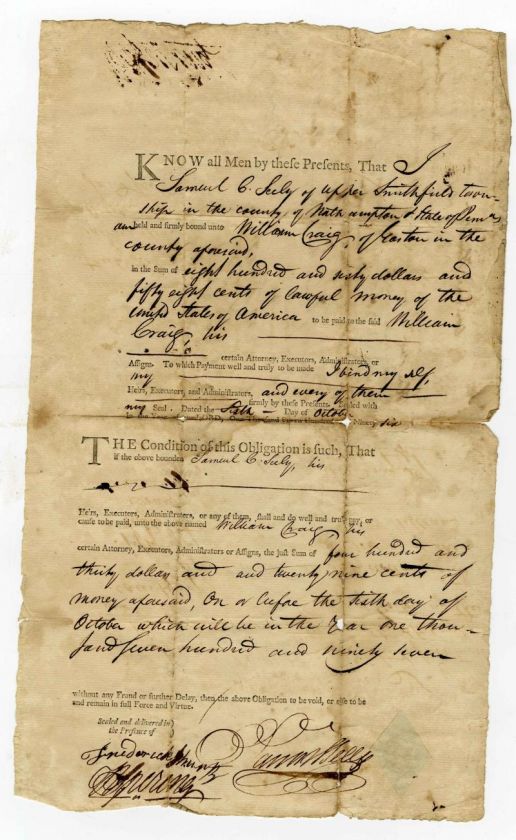 KNOW all Men by theſe Preſents, That I
Samuel C. Seely of upper Smithfield town-
ship in the county of North ampton & State of Penn
am held and firmly bound unto William Craig, of Easton in the
county aforesaid,
in the Sum of eight hundred and sixty dollars and
fifty eight cents of lawful money of the
United States of America to be paid to the ſaid William
Craig, his
certain Attorney, Executors, Adminiſtrators, or
Aſſigns. To which Payment well and truly to be made I bind my self,
my
Heirs, Executors, and Adminiſtrators, and every of them
firmly by theſe Preſents. Sealed with
my Seal. Dated the Sixth Day of October
Ninety six
THE Condition of this Obligation is ſuch, That
if the above bounden Samuel C. Seely, his
Heirs, Executors, Adminiſtrators, or any of them, ſhall and do well and truly pay, or
cauſe to be paid, unto the above named William Craig his
certain Attorney, Executors, Adminiſtrators or Aſſigns, the juſt Sum of four hundred and
thirty dollars and and twenty nine cents of
money aforesaid, On or before the sixth day of
October which will be in the Year one thou-
sand seven hundred and ninety seven
without any Fraud or further Delay, then the above Obligation to be void, or elſe to be
and remain in full Force and Virtue.
Sealed and delivered in
the Preſence of
Frederick